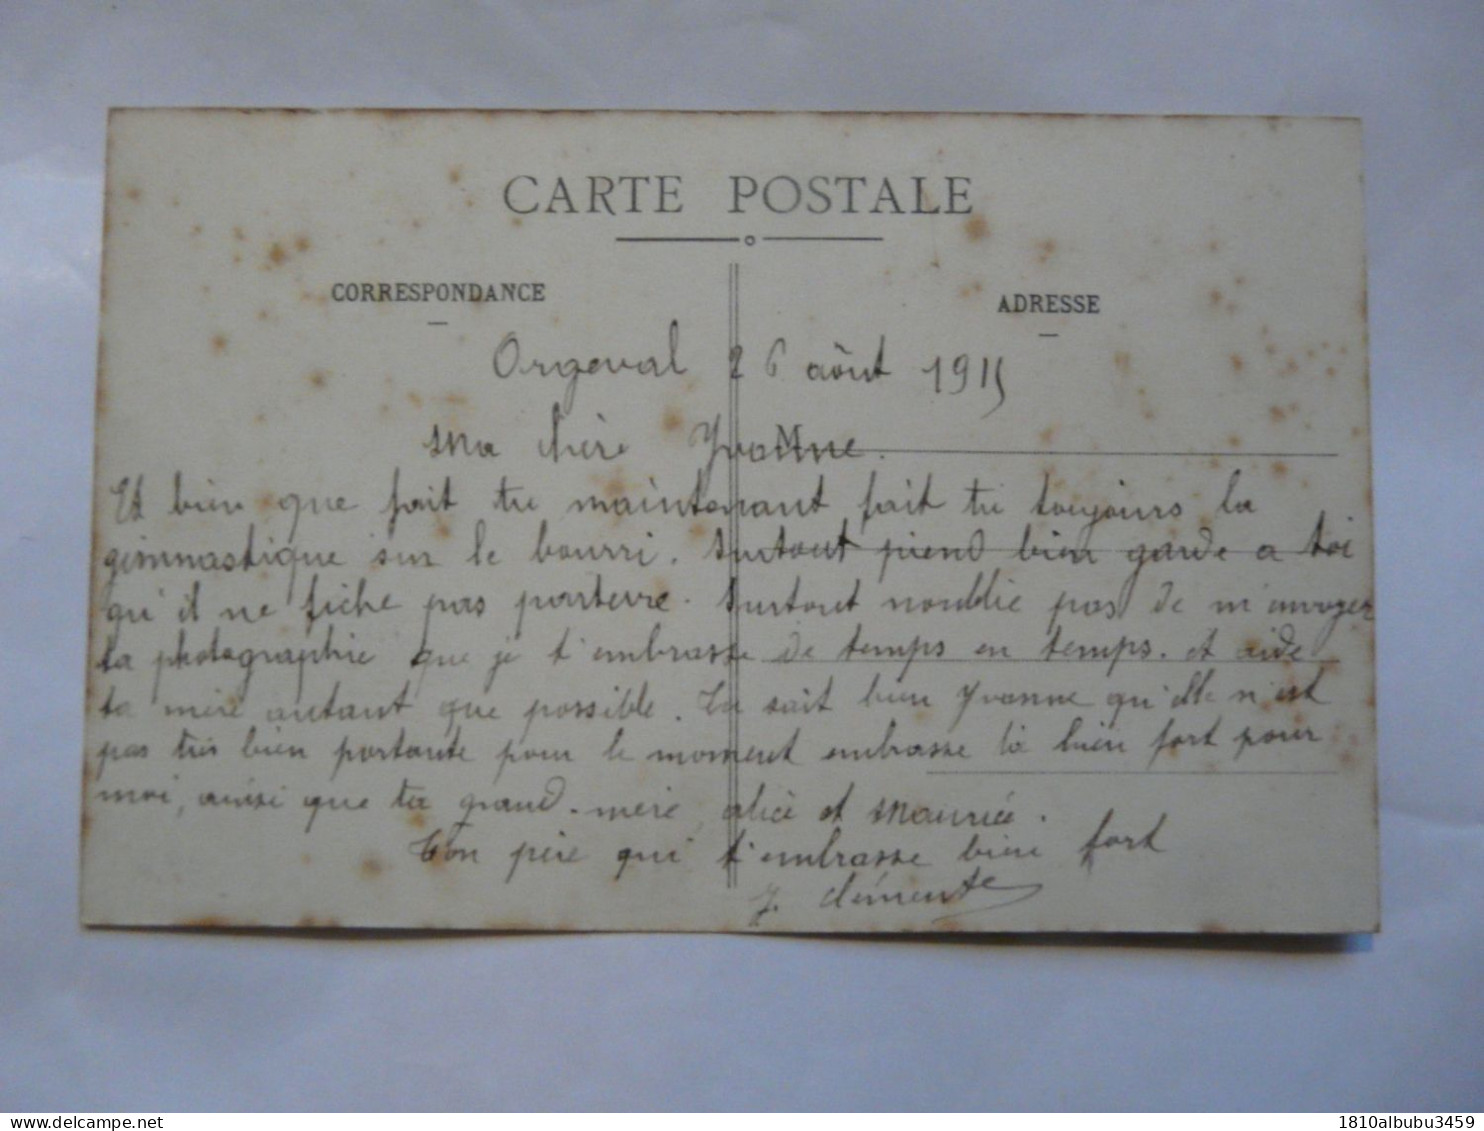 CARTE POSTALE
CORRESPONDANCE
ADRESSE
Orgeval 26 aôut 1915
M
Ma chère Yvonne.
Et bien que fait tu maintenant fait tu toujours la
gimnastique sur le bourri. Surtout piend bien garde a toi
qu'il ne fiche pas parterre. Surtout noublie pas de m'envoyer
ta photographie que je t'embrasse de temps en temps. et aide
ta mère autant que possible. Tu sait bien Yvonne qu'elle n'est
pas très bien portante pour le moment embrasse là bien fort pour
moi, ainsi que ta grand-mère, alice et Maurice.
Ton père qui t'embrasse bien fort
J. Clémente
1810albubu3459